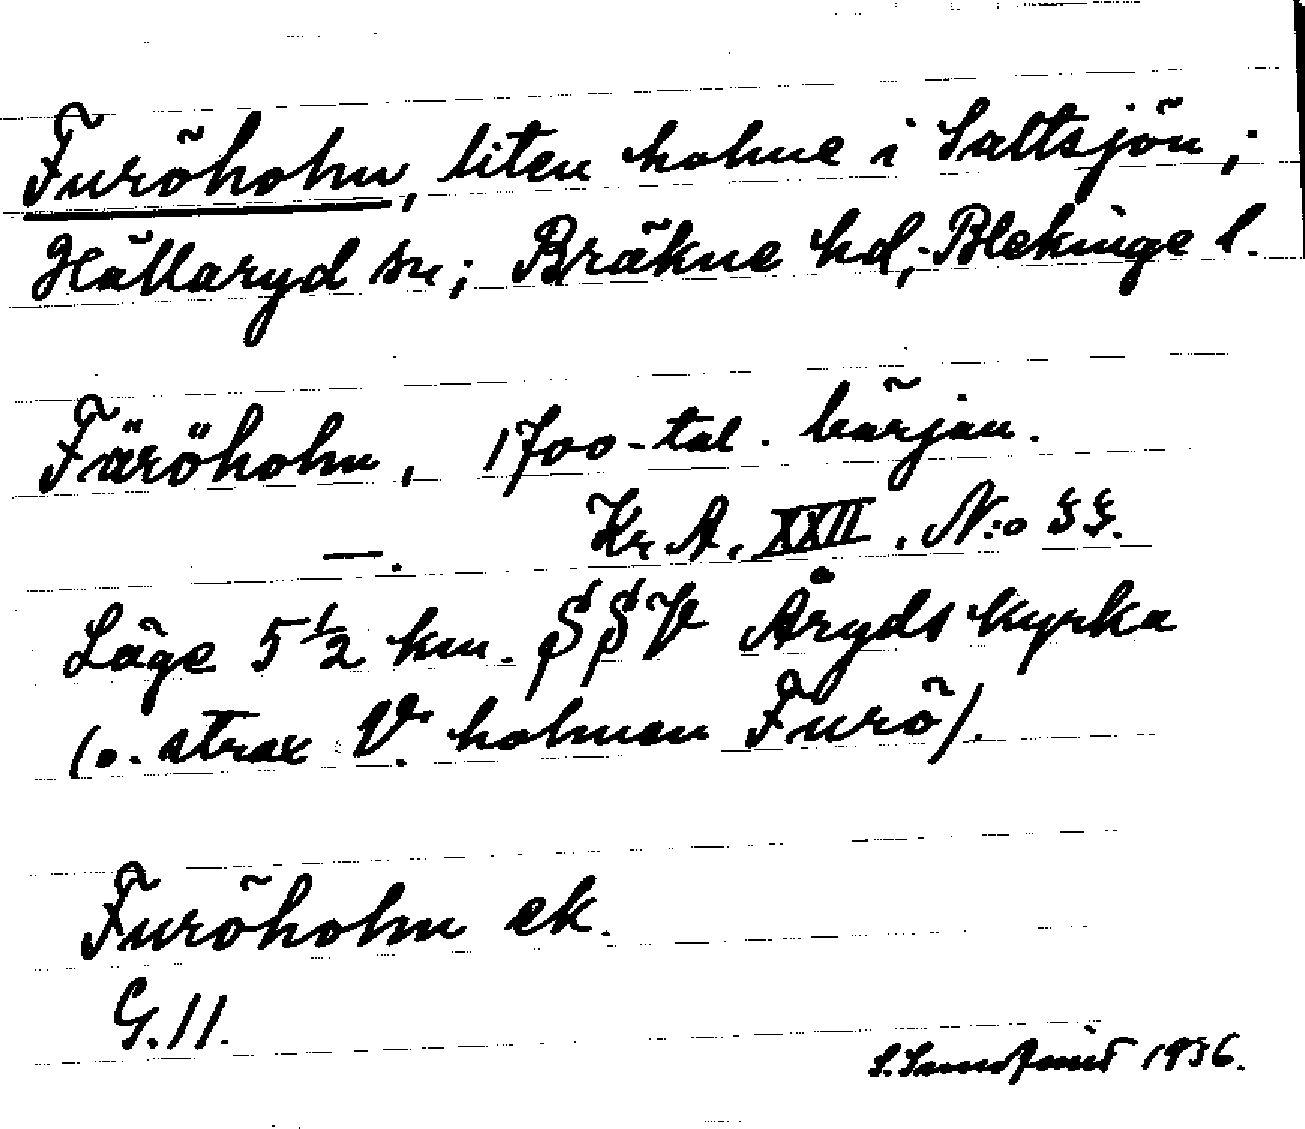 Furöholm, liten holme i Saltsjön;
Hällaryd sn; Bräkne hd; Blekinge l.
Färöholm, 1700-tal. början.
—. Kr. A. XXII. N:o 33.
Läge 5 1/2 km. SSV Åryds kyrka
(o. strax V. holmen Furö).
Furöholm ek.
G. 11.
S. 1936.